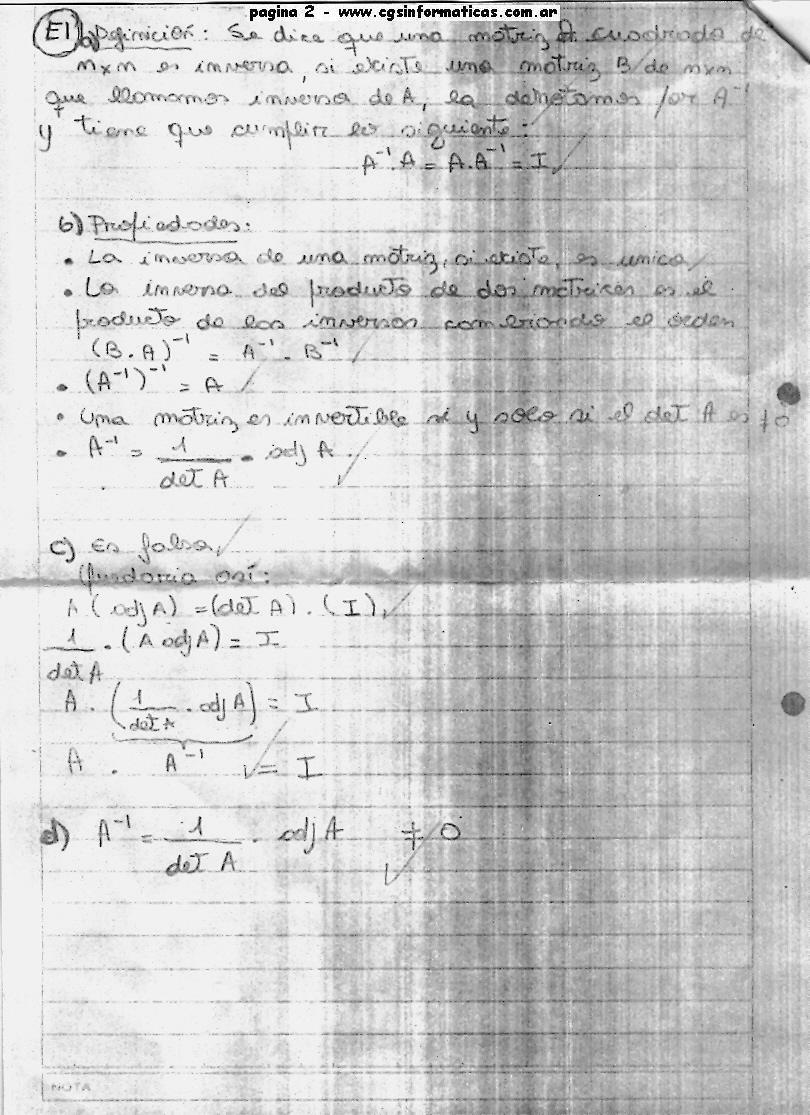 pagina 2 - www.cgsinformaticas.com.ar
E1) a) Definición: Se dice que una matriz A cuadrada de
nxn es inversa, si existe una matriz B de nxn
que llamamos inversa de A, la denotamos por A⁻¹
y tiene que cumplir lo siguiente:
A⁻¹. A = A. A⁻¹ = I
b) Propiedades:
• La inversa de una matriz, si existe, es unica
• La inversa del producto de dos matrices es el
producto de las inversas cambiando el orden
(B. A)⁻¹ = A⁻¹ . B⁻¹
• (A⁻¹)⁻¹ = A
• Una matriz es invertible si y solo si el det A es ≠ 0
• A⁻¹ = 1/det A • adj A.
c) Es falsa,
Quedaria así:
A (adj A) = (det A) . (I)
1/det A . (A adj A) = I
A . (1/det A . adj A) = I
A . A⁻¹ = I
d) A⁻¹ = 1/det A . adj A ≠ 0
NOTA